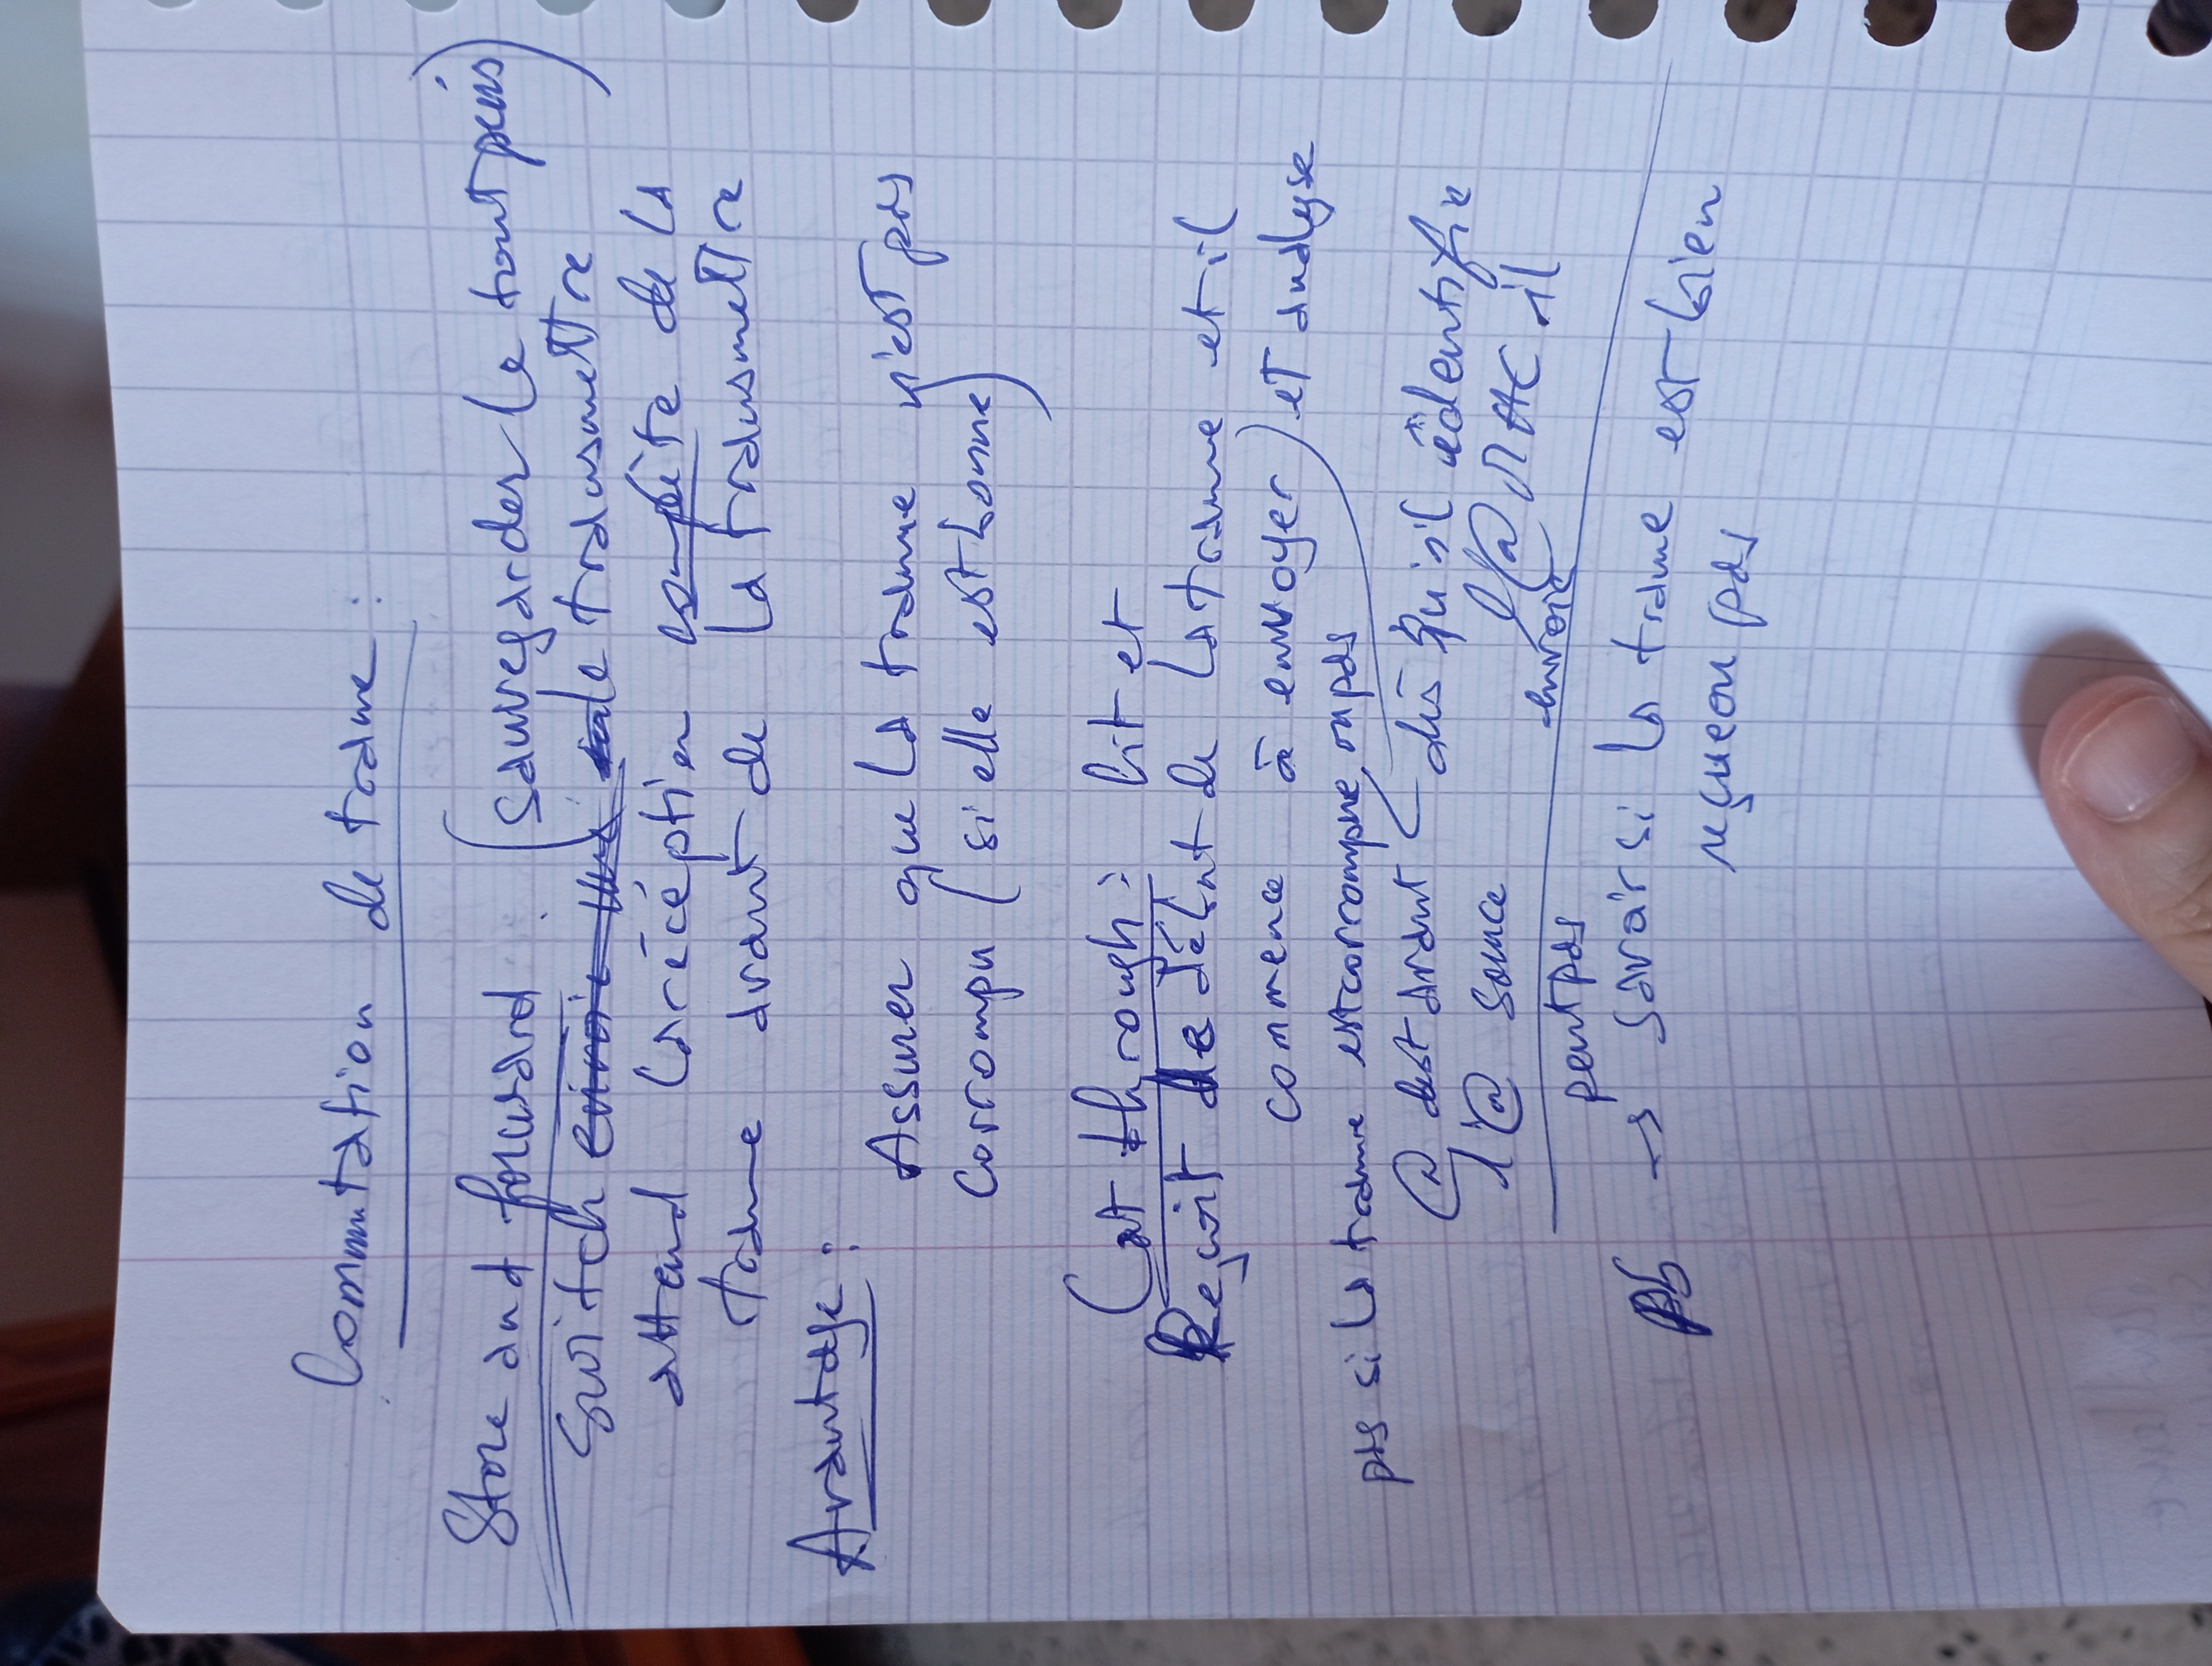 Commutation de trame :
Store and forward : (sauvegarder le tout puis
switch le transmettre)
attend la récéption complète de la
trame avant de la transmettre
Avantage :
Assurer que la trame n'est pas
corrompu (si elle est bonne)
Cut through : lit et
Reçoit le début de la trame et il
commence à envoyer et analyse
pas si la trame est corrompue ou pas
@ dest avant dès qu'il identifie
l'@ source l'@ MAC il
envoie
peut pas
pb → savoir si la trame est bien
reçue ou pas